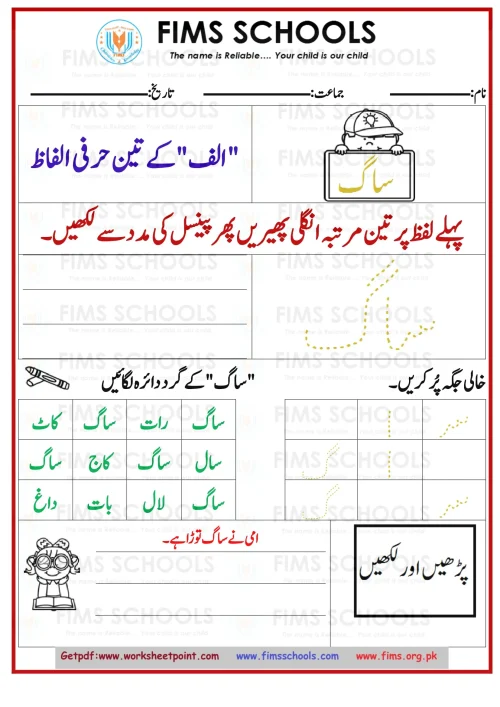 FIMS SCHOOLS
The name is Reliable.... Your child is our child
نام: جماعت: تاریخ:
ساگ
"الف" کے تین حرفی الفاظ
پہلے لفظ پر تین مرتبہ انگلی پھیریں پھر پینسل کی مدد سے لکھیں۔
ساگ
خالی جگہ پُر کریں۔
"ساگ" کے گرد دائرہ لگائیں
ساگ رات ساگ کاٹ
سال ساگ کاج ساگ
ساگ لال بات داغ
سـ ا
سـ ا گ
سـ گ
پڑھیں اور لکھیں
امی نے ساگ توڑا ہے۔
Getpdf:www.worksheetpoint.com www.fimsschools.com www.fims.org.pk